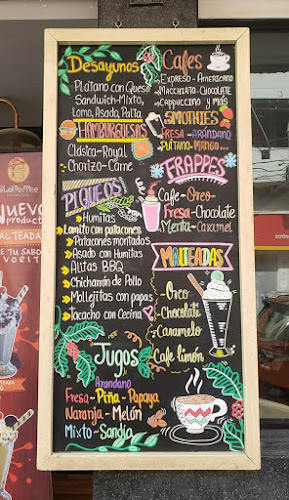 Desayunos
Platano con Queso
Sandwich-Mixto,
Lomo, Asado, Palta
HAMBURGUESAS
Clásica-Royal
Chorizo-Carne
PIQUEOS
Humitas
Lomito con patacones
Patacones montados
Asado con Humitas
Alitas BBQ
Chicharrón de Pollo
Mollejitas con papas
Tacacho con Cecina
Jugos
Arandano
Fresa-Piña-Papaya
Naranja-Melón
Mixto-Sandía
Cafes
Expreso-Americano
Macchiato-Chocolate
Cappuccino y más
SMOTHIES
FRESA-ARÁNDANO
PLÁTANO-MANGO...
FRAPPES
Cafe-Oreo
Fresa-Chocolate
Menta-Caramel
MALTEADAS
Oreo
Chocolate
Caramelo
Cafe limón
NUEVO
product